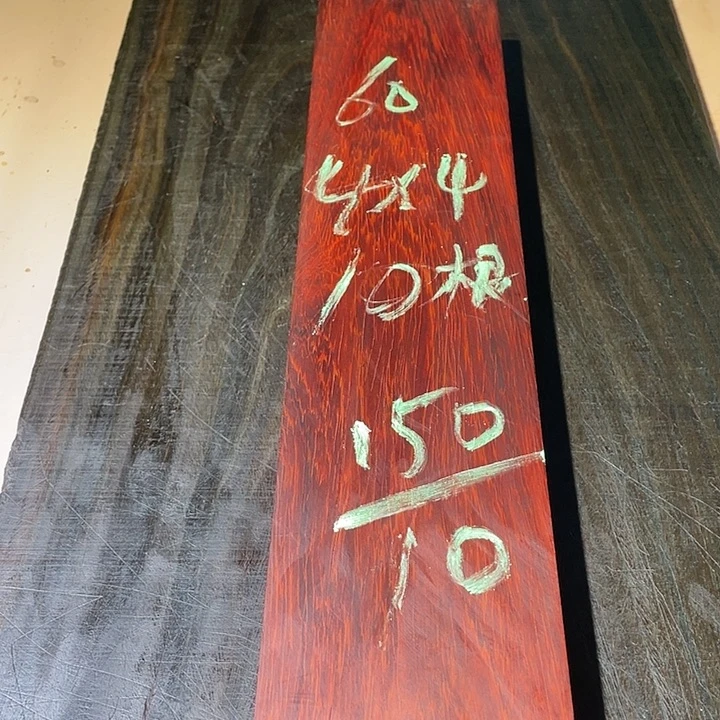 60
4x4
10根
150
10